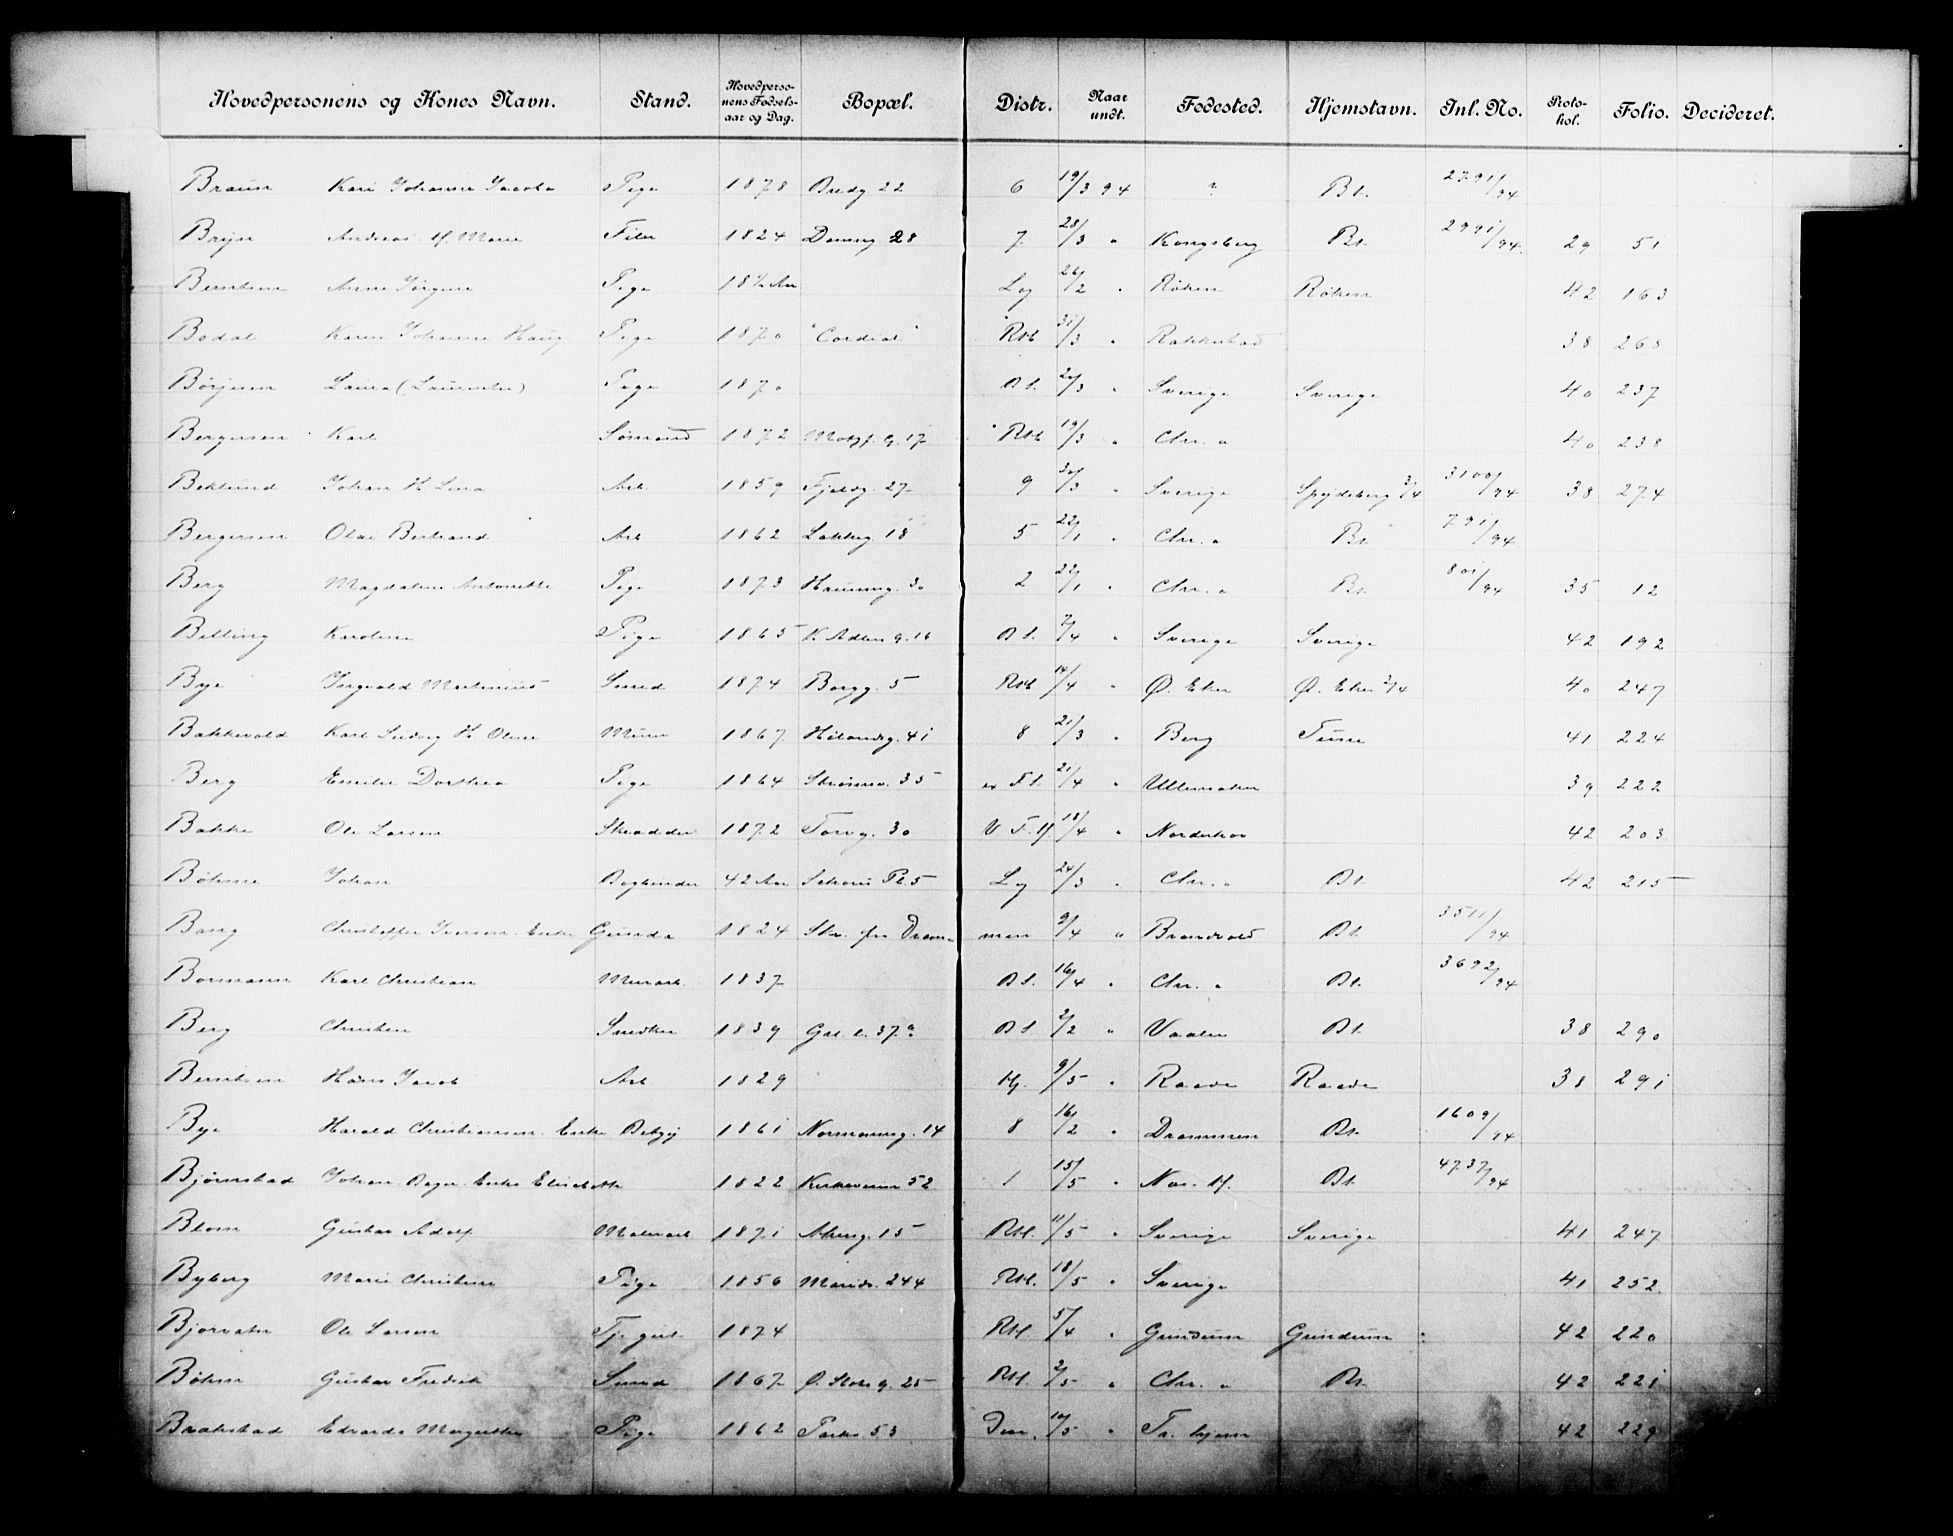 Hovedpersonens og Kones Navn. Stand. Hovedpersonens Fødselsaar og Dag. Bopæl. Distr. Naar undt. Fødested. Hjemstavn. Inl. No. Protokol. Folio. Decideret.
Braun Kari Johanne Jacoba Pige 1878 Bredg 22 6 19/3 94 ? Bt. 2791/94
Bryn Andreas H. Marie Filer 1824 Damsg. 28 7 28/3 " Kongsberg Bt. 2991/94. 29 51
Berntsen Anne Jørgine Pige 18½ Aar Lg 26/2 " Røken Røken 42 163
Bodal Karen Johanne Haug Pige 1870 "Cordial" RH 31/3 " Rakkestad 38 268
Børjesen Laura Pige 1870 Bt. /3 " Sverige Sverige 40 237
Bergersen Karl Sømand 1872 Motzf. G. 17 RH 19/3 " Chr. a 40 238
Beklund Johan H. Lina Arb. 1859 Fjeldg. 27 9 30/3 " Sverige Spydeberg 3/4 3100/94 38 274
Bergersen Olav Bertrand Arb 1862 Lakkeg. 18 5 22/1 " Chr. a Bt. 791/94.
Berg Magdalene Antonette Pige 1873 Hausmg. 30 2 22/1 " Chr. a Bt. 801/94 35 12
Belling Karoline Pige 1865 K. Adlers g. 16 Bt. 7/4 " Sverige Sverige 42 192
Bye Ingvald Martinius Smed 1874 Borgg. 5 RH 14/4 " Ø. Eker Ø. Eker 2/4 40 247
Bakkevold Karl Ludvig H. Oline Murer 1867 41 8 21/3 " Berg Tune 41 224
Berg Emilie Dorthea Pige 1864 Strømsv. 35 21/4 " Ullensaker 39 222
Bakke Ole Larsen Skrædder 1872 Torvg. 30 V. F. H. 18/4 " Norderhov 42 203
Bøhme Johan Bogbinder 42 Aar Schous Pl. 5 Lg 24/3 " Chr. a Bt. 42 215
Bang Christoffer Iversen. Enke Gunda 1824 Skr. fra Drammen 9/4 " Brandvold Bt. 3511/94
Bormann Karl Christian Murarb. 1837 Bt. 16/4 " Chr. a Bt. 3692/94
Berg Christen Snedker 1839 37 a Bt. 2/2 " Vaaler Bt. 38 290
Berntsen Hans Jacob Arb 1829 Hj. 9/5 " Raade Raade 38 291
Bye Harald Christiansen. Enke Betzy 1861 Normannsg. 14 8 16/2 " Drammen Bt. 1609/94
Bjørnstad Johan Enke Elisabeth 1822 Kirkeveien 52 1 15/5 " Bt. 4737/94
Blom Gustav Adolf Malerarb 1871 Akersg. 15 RH. 11/5 " Sverige Sverige 41 247
Byberg Marie Christine Pige 1856 Marids. 244 RH. 18/5 " Sverige 41 252
Bjorvatn Ole Larsen Tj. gut 1874 RH 5/4 " Grindum Grindum 42 220
Bøhm Gustav Fredrik Smed 1867 g. 25 RH. 2/5 " Chr. a Bt. 42 221
Brakstad Edvarda Margrethe Pige 1862 Parkv 53 10/5 " Tr. hjem 42 229